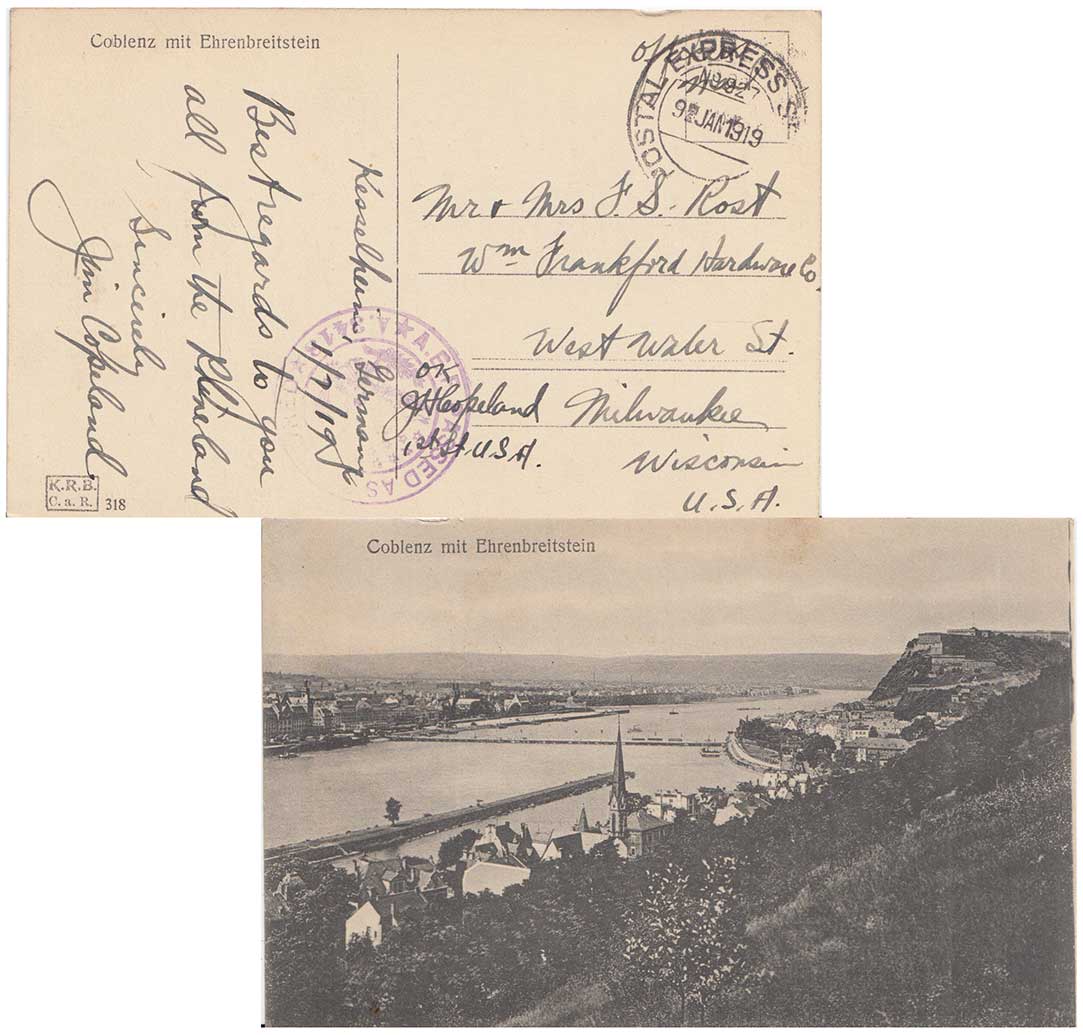 Coblenz mit Ehrenbreitstein
Kesselheim, Germany
1/2/19
Best regards to you
all from the Rhineland
Sincerely
Jim Copeland
K.R.B.
C. a. R. 318
POSTAL EXPRESS
JAN 1919
Mr & Mrs F. S. Rost
Wm Frankford Hardware Co.
West Water St.
Milwaukee
Wisconsin
U. S. A.
OK
JHCopeland
1st Lt U S A.
A.E.F. PASSED AS
Coblenz mit Ehrenbreitstein